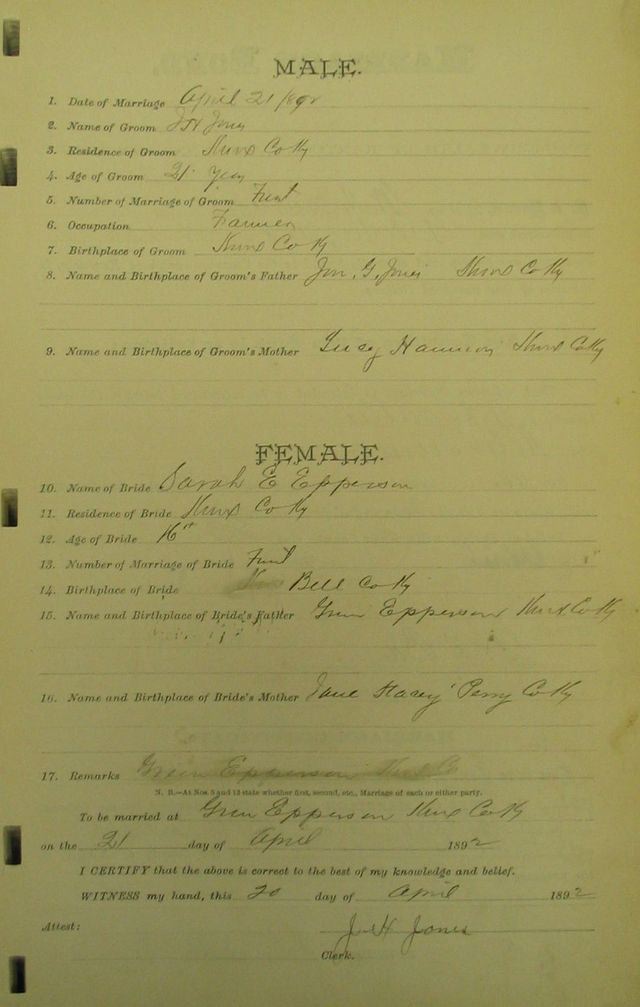 MALE.
1. Date of Marriage April 21 1892
2. Name of Groom J H Jones
3. Residence of Groom Knox Co Ky
4. Age of Groom 21 years
5. Number of Marriage of Groom First
6. Occupation Farmer
7. Birthplace of Groom Knox Co Ky
8. Name and Birthplace of Groom's Father G. Jones Knox Co Ky
9. Name and Birthplace of Groom's Mother Lucy Knox Co Ky
FEMALE.
10. Name of Bride Sarah E Epperson
11. Residence of Bride Knox Co Ky
12. Age of Bride 16
13. Number of Marriage of Bride First
14. Birthplace of Bride Bell Co Ky
15. Name and Birthplace of Bride's Father Green Epperson Knox Co Ky
16. Name and Birthplace of Bride's Mother Jane Stacey Perry Co Ky
17. Remarks Green Epperson Knox Co
N. B.—At Nos. 5 and 13 state whether first, second, etc., Marriage of each or either party.
To be married at Green Epperson Knox Co Ky
on the 21 day of April 1892
I CERTIFY that the above is correct to the best of my knowledge and belief.
WITNESS my hand, this 20 day of April 1892
Attest: J H Jones
Clerk.